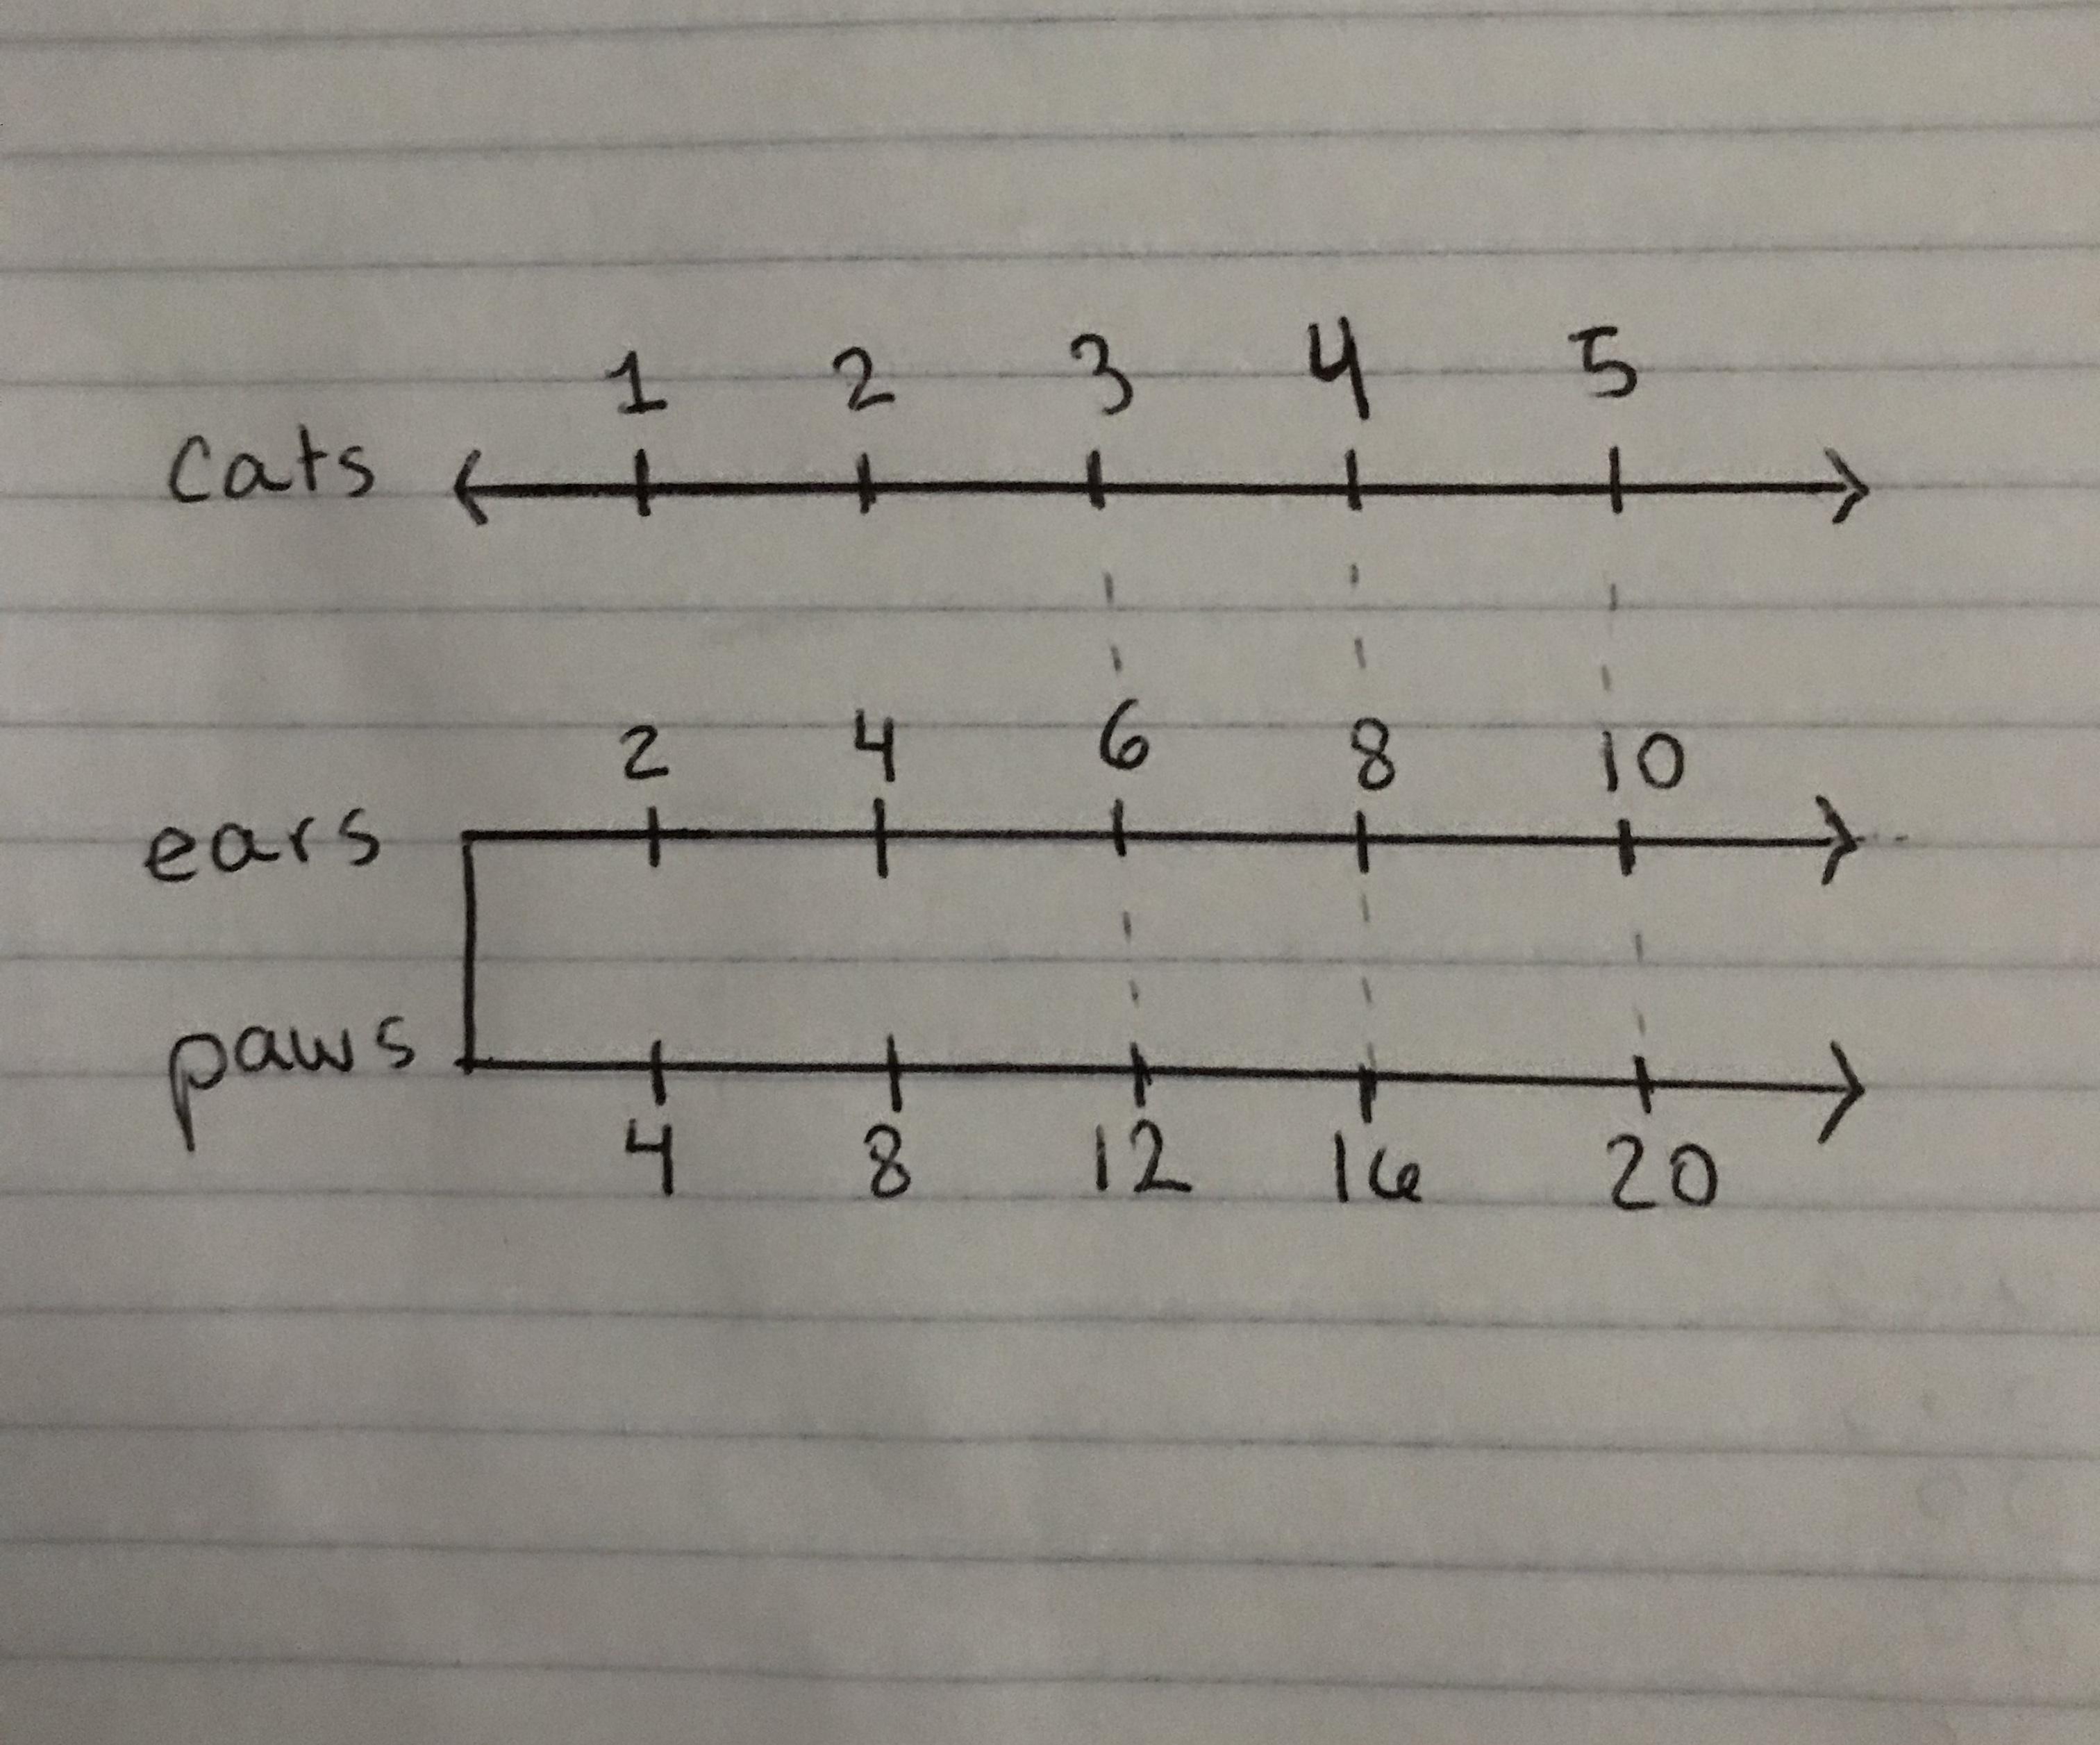 1 2 3 4 5
cats
2 4 6 8 10
ears
paws
4 8 12 16 20